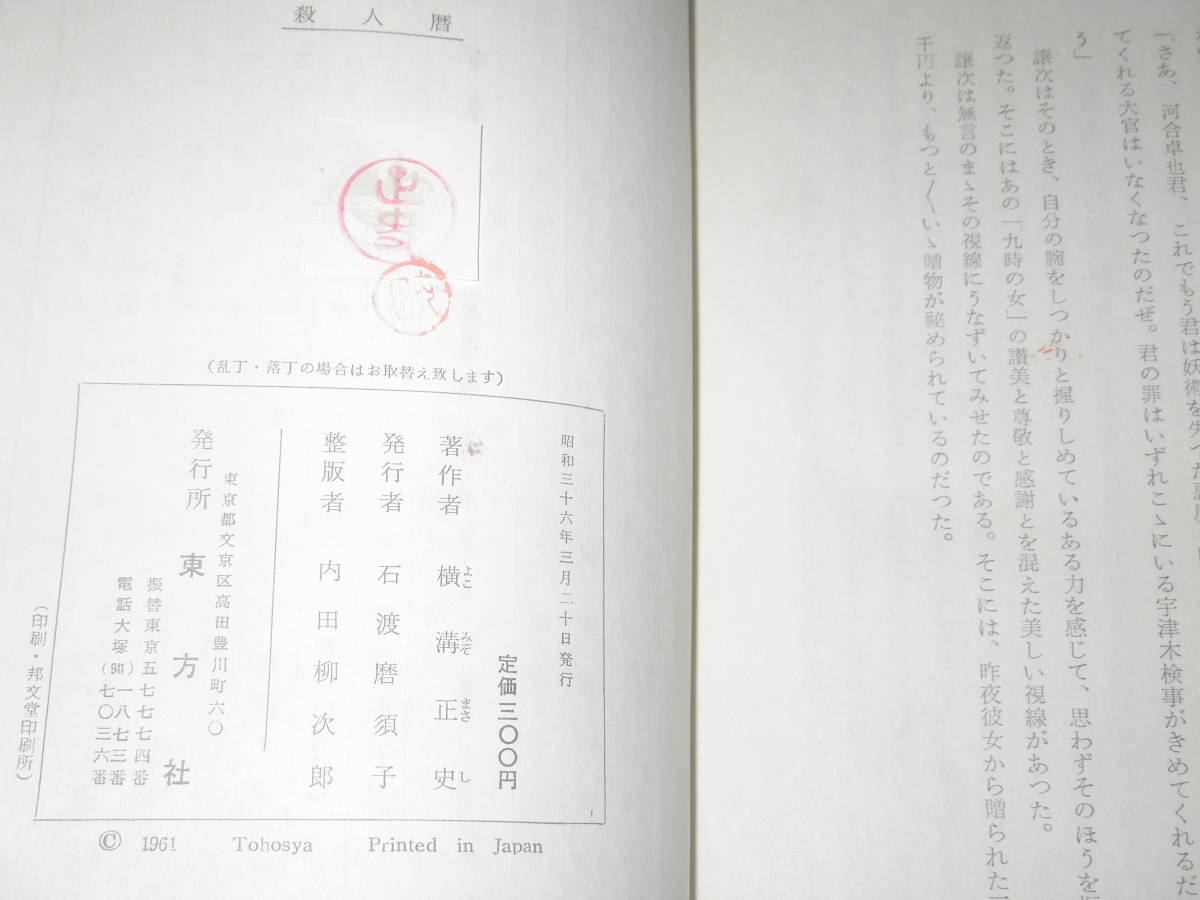 「さあ、河合卓也君、これでもう君は妖術を失つた
てくれる大官はいなくなつたのだぜ。君の罪はいずれこゝにいる宇津木検事がきめてくれるだ
う」
譲次はそのとき、自分の腕をしつかりと握りしめているある力を感じて、思わずそのほうを
返つた。そこにはあの「九時の女」の讃美と尊敬と感謝とを混えた美しい視線があつた。
譲次は無言のまゝその視線にうなずいてみせたのである。そこには、昨夜彼女から贈られた
千円より、もつと〳〵いゝ贈物が秘められているのだつた。
殺人暦
(乱丁・落丁の場合はお取替え致します)
昭和三十六年三月二十日発行
定価三〇〇円
著作者 横溝正史
よこ みぞ まさ し
発行者 石渡磨須子
整版者 内田柳次郎
東京都文京区高田豊川町六〇
発行所 東方社
振替東京五七七七四番
電話大塚(941)一八七三番
七〇三六番
(印刷・邦文堂印刷所)
© 1961 Tohosya Printed in Japan